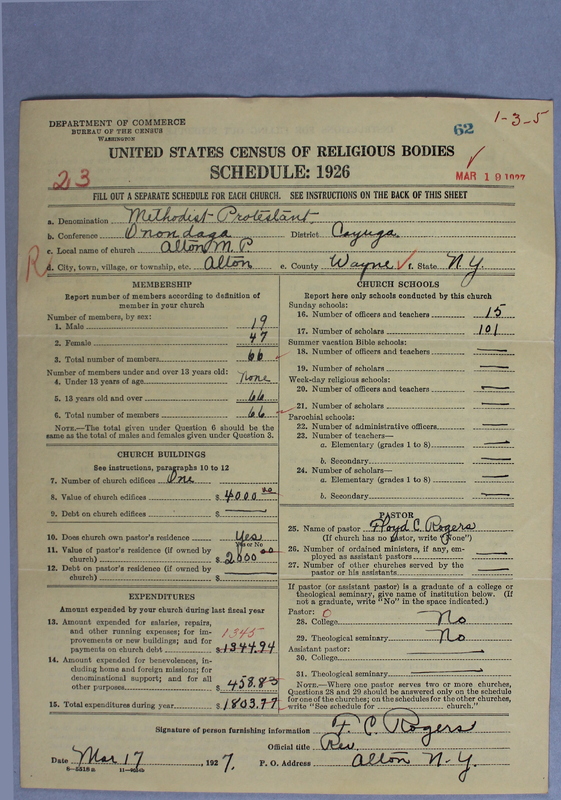 DEPARTMENT OF COMMERCE
BUREAU OF THE CENSUS
WASHINGTON
62
1-3-5
UNITED STATES CENSUS OF RELIGIOUS BODIES
SCHEDULE: 1926
23
MAR 19 1927
FILL OUT A SEPARATE SCHEDULE FOR EACH CHURCH. SEE INSTRUCTIONS ON THE BACK OF THIS SHEET
a. Denomination Methodist Protestant
b. Conference Onondaga District Cayuga.
c. Local name of church Alton M. P
R
d. City, town, village, or township, etc. Alton e. County Wayne f. State N.Y.
MEMBERSHIP
Report number of members according to definition of
member in your church
Number of members, by sex:
1. Male 19
2. Female 47
3. Total number of members 66
Number of members under and over 13 years old:
4. Under 13 years of age none
5. 13 years old and over 66
6. Total number of members 66
NOTE.—The total given under Question 6 should be
same as the total of males and females given under Question 3.
CHURCH BUILDINGS
See instructions, paragraphs 10 to 12
7. Number of church edifices One
8. Value of church edifices $4000.00
9. Debt on church edifices $
10. Does church own pastor's residence Yes
Yes or No
11. Value of pastor's residence (if owned by
church) $2000.00
12. Debt on pastor's residence (if owned by
church) $
EXPENDITURES
Amount expended by your church during last fiscal year
13. Amount expended for salaries, repairs,
and other running expenses; for im-
provements or new buildings; and for
payments on church debt $1344.94
1345
14. Amount expended for benevolences, in-
cluding home and foreign missions; for
denominational support; and for all
other purposes $458.83
15. Total expenditures during year $1803.77
CHURCH SCHOOLS
Report here only schools conducted by this church
Sunday schools:
16. Number of officers and teachers 15
17. Number of scholars 101
Summer vacation Bible schools:
18. Number of officers and teachers
19. Number of scholars
Week-day religious schools:
20. Number of officers and teachers
21. Number of scholars
Parochial schools:
22. Number of administrative officers
23. Number of teachers—
a. Elementary (grades 1 to 8)
b. Secondary
24. Number of scholars—
a. Elementary (grades 1 to 8)
b. Secondary
PASTOR
25. Name of pastor Floyd C. Rogers
(If church has no pastor, write "None")
26. Number of ordained ministers, if any, em-
ployed as assistant pastors
27. Number of other churches served by the
pastor or his assistants
If pastor (or assistant pastor) is a graduate of a college or
theological seminary, give name of institution below. (If
not a graduate, write "No" in the space indicated.)
Pastor: 0
28. College No
29. Theological seminary No
Assistant pastor:
30. College
31. Theological seminary
NOTE.—Where one pastor serves two or more churches,
Questions 28 and 29 should be answered only on the schedule
for one of the churches; on the schedules for the other churches,
write "See schedule for church."
Signature of person furnishing information F. C. Rogers
Official title Rev.
Date Mar 17, 1927. P. O. Address Alton N.Y.